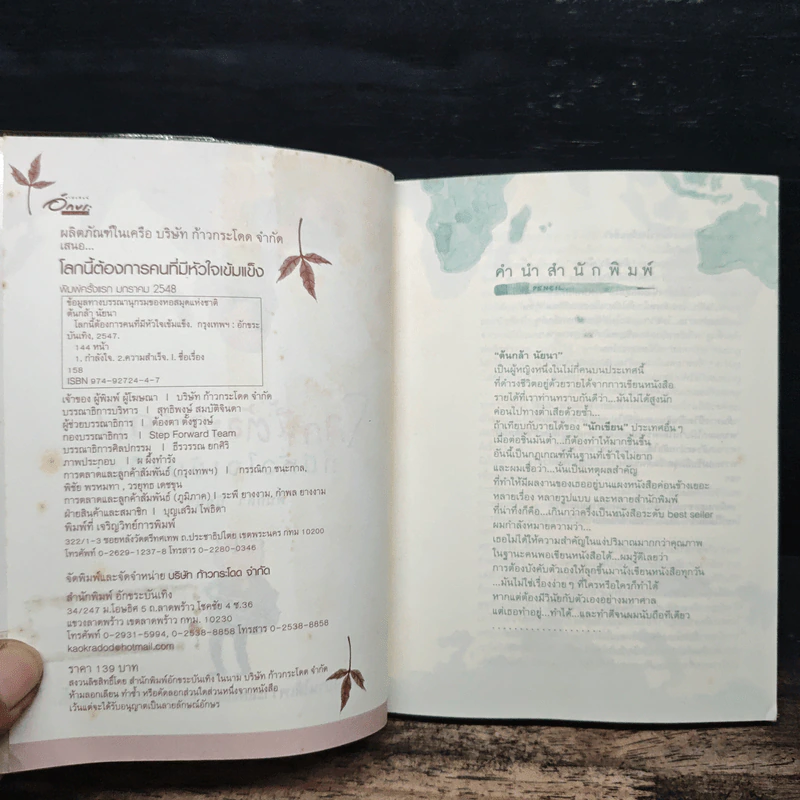 อักษร
ผลิตภัณฑ์ในเครือ บริษัท ก้าวกระโดด จำกัด
เสนอ...
โลกนี้ต้องการคนที่มีหัวใจเข้มแข็ง
พิมพ์ครั้งแรก มกราคม 2548
ข้อมูลทางบรรณานุกรมของหอสมุดแห่งชาติ
ต้นกล้า นัยนา
โลกนี้ต้องการคนที่มีหัวใจเข้มแข็ง. กรุงเทพฯ : อักขระ
บันเทิง, 2547.
144 หน้า
1. กำลังใจ. 2.ความสำเร็จ. I. ชื่อเรื่อง
158
ISBN 974-92724-4-7
เจ้าของ ผู้พิมพ์ ผู้โฆษณา ı บริษัท ก้าวกระโดด จำกัด
บรรณาธิการบริหาร ı สุทธิพงษ์ สมบัติจินดา
ผู้ช่วยบรรณาธิการ ı ต้องตา ตั้งชูวงษ์
กองบรรณาธิการ ı Step Forward Team
บรรณาธิการศิลปกรรม ı ธีรวรรณ ยกศิริ
ภาพประกอบ ı ผ ผึ้งทำรัง
การตลาดและลูกค้าสัมพันธ์ (กรุงเทพฯ) ı กรรณิกา ชนะกาล,
พิชัย พรหมทา , วรยุทธ เดชขุน
การตลาดและลูกค้าสัมพันธ์ (ภูมิภาค) ı ระพี ยางงาม, กำพล ยางงาม
ฝ่ายสินค้าและสมาชิก ı บุญเสริม โพธิดา
พิมพ์ที่ เจริญวิทย์การพิมพ์
322/1-3 ซอยหลังวัดตรีทศเทพ ถ.ประชาธิปไตย เขตพระนคร กทม 10200
โทรศัพท์ 0-2629-1237-8 โทรสาร 0-2280-0346
จัดพิมพ์และจัดจำหน่าย บริษัท ก้าวกระโดด จำกัด
สำนักพิมพ์ อักขระบันเทิง
34/247 ม.โอษธิศ 5 ถ.ลาดพร้าว โชคชัย 4 ซ.36
แขวงลาดพร้าว เขตลาดพร้าว กทม. 10230
โทรศัพท์ 0-2931-5994, 0-2538-8858 โทรสาร 0-2538-8858
kaokradod@hotmail.com
ราคา 139 บาท
สงวนลิขสิทธิ์โดย สำนักพิมพ์อักขระบันเทิง ในนาม บริษัท ก้าวกระโดด จำกัด
ห้ามลอกเลียน ทำซ้ำ หรือคัดลอกส่วนใดส่วนหนึ่งจากหนังสือ
เว้นแต่จะได้รับอนุญาตเป็นลายลักษณ์อักษร
คำนำสำนักพิมพ์
PENCIL
"ต้นกล้า นัยนา"
เป็นผู้หญิงหนึ่งในไม่กี่คนบนประเทศนี้
ที่ดำรงชีวิตอยู่ด้วยรายได้จากการเขียนหนังสือ
รายได้ที่เราท่านทราบกันดีว่า...มันไม่ได้สูงนัก
ค่อนไปทางต่ำเสียด้วยซ้ำ...
ถ้าเทียบกับรายได้ของ "นักเขียน" ประเทศอื่นๆ
เมื่อค่อยชิ้นมันต่ำ...ก็ต้องทำให้มากชิ้นขึ้น
อันนี้เป็นกฏเกณฑ์พื้นฐานที่เข้าใจไม่ยาก
และผมเชื่อว่า...นั่นเป็นเหตุผลสำคัญ
ที่ทำให้มีผลงานของเธออยู่บนแผงหนังสือค่อนข้างเยอะ
หลายเรื่อง หลายรูปแบบ และหลายสำนักพิมพ์
ที่น่าทึ่งก็คือ...เกินกว่าครึ่งเป็นหนังสือระดับ best seller
ผมกำลังหมายความว่า...
เธอไม่ได้ให้ความสำคัญในแง่ปริมาณมากกว่าคุณภาพ
ในฐานะคนพอเขียนหนังสือได้...ผมรู้ดีเลยว่า
การต้องบังคับตัวเองให้ลุกขึ้นมานั่งเขียนหนังสือทุกวัน
...มันไม่ใช่เรื่องง่ายๆ ที่ใครหรือใครก็ทำได้
หากแต่ต้องมีวินัยกับตัวเองอย่างมหาศาล
แต่เธอทำอยู่...ทำได้...และทำดีจนผมนับถือทีเดียว
...................